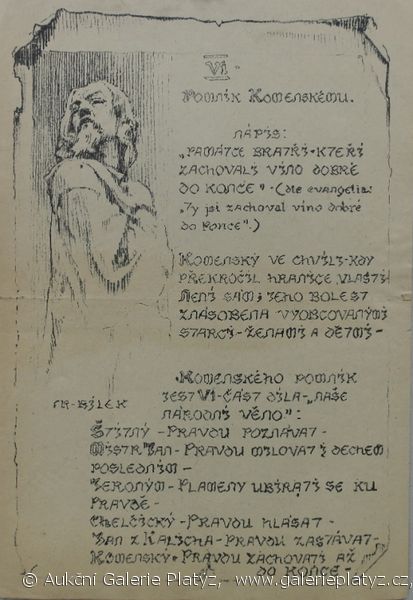 VI.
POMNÍK KOMENSKÉMU.
NÁPIS:
„PAMÁTCE BRATŘÍ·KTEŘÍ
ZACHOVALI VÍNO DOBRÉ
DO KONCE"·(dle evangelia:
„Ty jsi zachoval víno dobré
do konce".)
KOMENSKÝ VE CHVÍLI·KDY
PŘEKROČIL HRANICE VLASTI
NENÍ SÁM; JEHO BOLEST
ZNÁSOBENA VYOBCOVANÝMI
STARCI-ŽENAMI A DĚTMI-
KOMENSKÉHO POMNÍK
JEST VI-ČÁST DÍLA-„NAŠE
NÁRODNÍ VĚNO":
FR·BÍLEK
ŠTÍTNÝ-PRAVDU POZNÁVAT-
MISTR JAN-PRAVDU MILOVATI DECHEM
POSLEDNÍM-
JERONÝM-PLAMENY UBÍRATI SE KU
PRAVDĚ-
CHELČICKÝ-PRAVDU HLÁSAT-
JAN Z KALICHA-PRAVDU ZASTÁVAT-
KOMENSKÝ-PRAVDU ZACHOVATI AŽ
DO KONCE-
© Aukční Galerie Platýz, www.galerieplatyz.cz